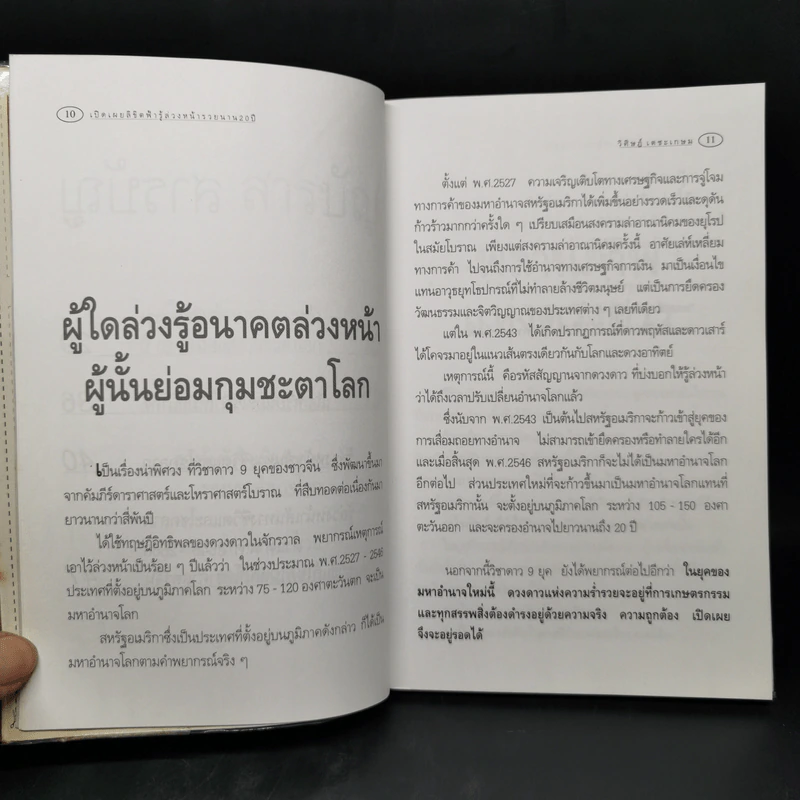 10 เปิดเผยลิขิตฟ้ารู้ล่วงหน้ารวยนาน20ปี
ผู้ใดล่วงรู้อนาคตล่วงหน้า
ผู้นั้นย่อมกุมชะตาโลก
เป็นเรื่องน่าพิศวง ที่วิชาดาว 9 ยุคของชาวจีน ซึ่งพัฒนาขึ้นมา
จากคัมภีร์ดาราศาสตร์และโหราศาสตร์โบราณ ที่สืบทอดต่อเนื่องกันมา
ยาวนานกว่าสี่พันปี
ได้ใช้ทฤษฎีอิทธิพลของดวงดาวในจักรวาล พยากรณ์เหตุการณ์
เอาไว้ล่วงหน้าเป็นร้อย ๆ ปีแล้วว่า ในช่วงประมาณ พ.ศ.2527 - 2546
ประเทศที่ตั้งอยู่บนภูมิภาคโลก ระหว่าง 75 - 120 องศาตะวันตก จะเป็น
มหาอำนาจโลก
สหรัฐอเมริกาซึ่งเป็นประเทศที่ตั้งอยู่บนภูมิภาคดังกล่าว ก็ได้เป็น
มหาอำนาจโลกตามคำพยากรณ์จริง ๆ
วิศิษฏ์ เตชะเกษม 11
ตั้งแต่ พ.ศ.2527 ความเจริญเติบโตทางเศรษฐกิจและการจู่โจม
ทางการค้าของมหาอำนาจสหรัฐอเมริกาได้เพิ่มขึ้นอย่างรวดเร็วและดุดัน
ก้าวร้าวมากกว่าครั้งใด ๆ เปรียบเสมือนสงครามล่าอาณานิคมของยุโรป
ในสมัยโบราณ เพียงแต่สงครามล่าอาณานิคมครั้งนี้ อาศัยเล่ห์เหลี่ยม
ทางการค้า ไปจนถึงการใช้อำนาจทางเศรษฐกิจการเงิน มาเป็นเงื่อนไข
แทนอาวุธยุทโธปกรณ์ที่ไม่ทำลายล้างชีวิตมนุษย์ แต่เป็นการยึดครอง
วัฒนธรรมและจิตวิญญาณของประเทศต่าง ๆ เลยทีเดียว
แต่ใน พ.ศ.2543 ได้เกิดปรากฏการณ์ที่ดาวพฤหัสและดาวเสาร์
ได้โคจรมาอยู่ในแนวเส้นตรงเดียวกันกับโลกและดวงอาทิตย์
เหตุการณ์นี้ คือรหัสสัญญานจากดวงดาว ที่บ่งบอกให้รู้ล่วงหน้า
ว่าได้ถึงเวลาปรับเปลี่ยนอำนาจโลกแล้ว
ซึ่งนับจาก พ.ศ.2543 เป็นต้นไปสหรัฐอเมริกาจะก้าวเข้าสู่ยุคของ
การเสื่อมถอยทางอำนาจ ไม่สามารถเข้ายึดครองหรือทำลายใครได้อีก
และเมื่อสิ้นสุด พ.ศ.2546 สหรัฐอเมริกาก็จะไม่ได้เป็นมหาอำนาจโลก
อีกต่อไป ส่วนประเทศใหม่ที่จะก้าวขึ้นมาเป็นมหาอำนาจโลกแทนที่
สหรัฐอเมริกานั้น จะตั้งอยู่บนภูมิภาคโลก ระหว่าง 105 - 150 องศา
ตะวันออก และจะครองอำนาจไปยาวนานถึง 20 ปี
นอกจากนี้วิชาดาว 9 ยุค ยังได้พยากรณ์ต่อไปอีกว่า ในยุคของ
มหาอำนาจใหม่นี้ ดวงดาวแห่งความร่ำรวยจะอยู่ที่การเกษตรกรรม
และทุกสรรพสิ่งต้องดำรงอยู่ด้วยความจริง ความถูกต้อง เปิดเผย
จึงจะอยู่รอดได้